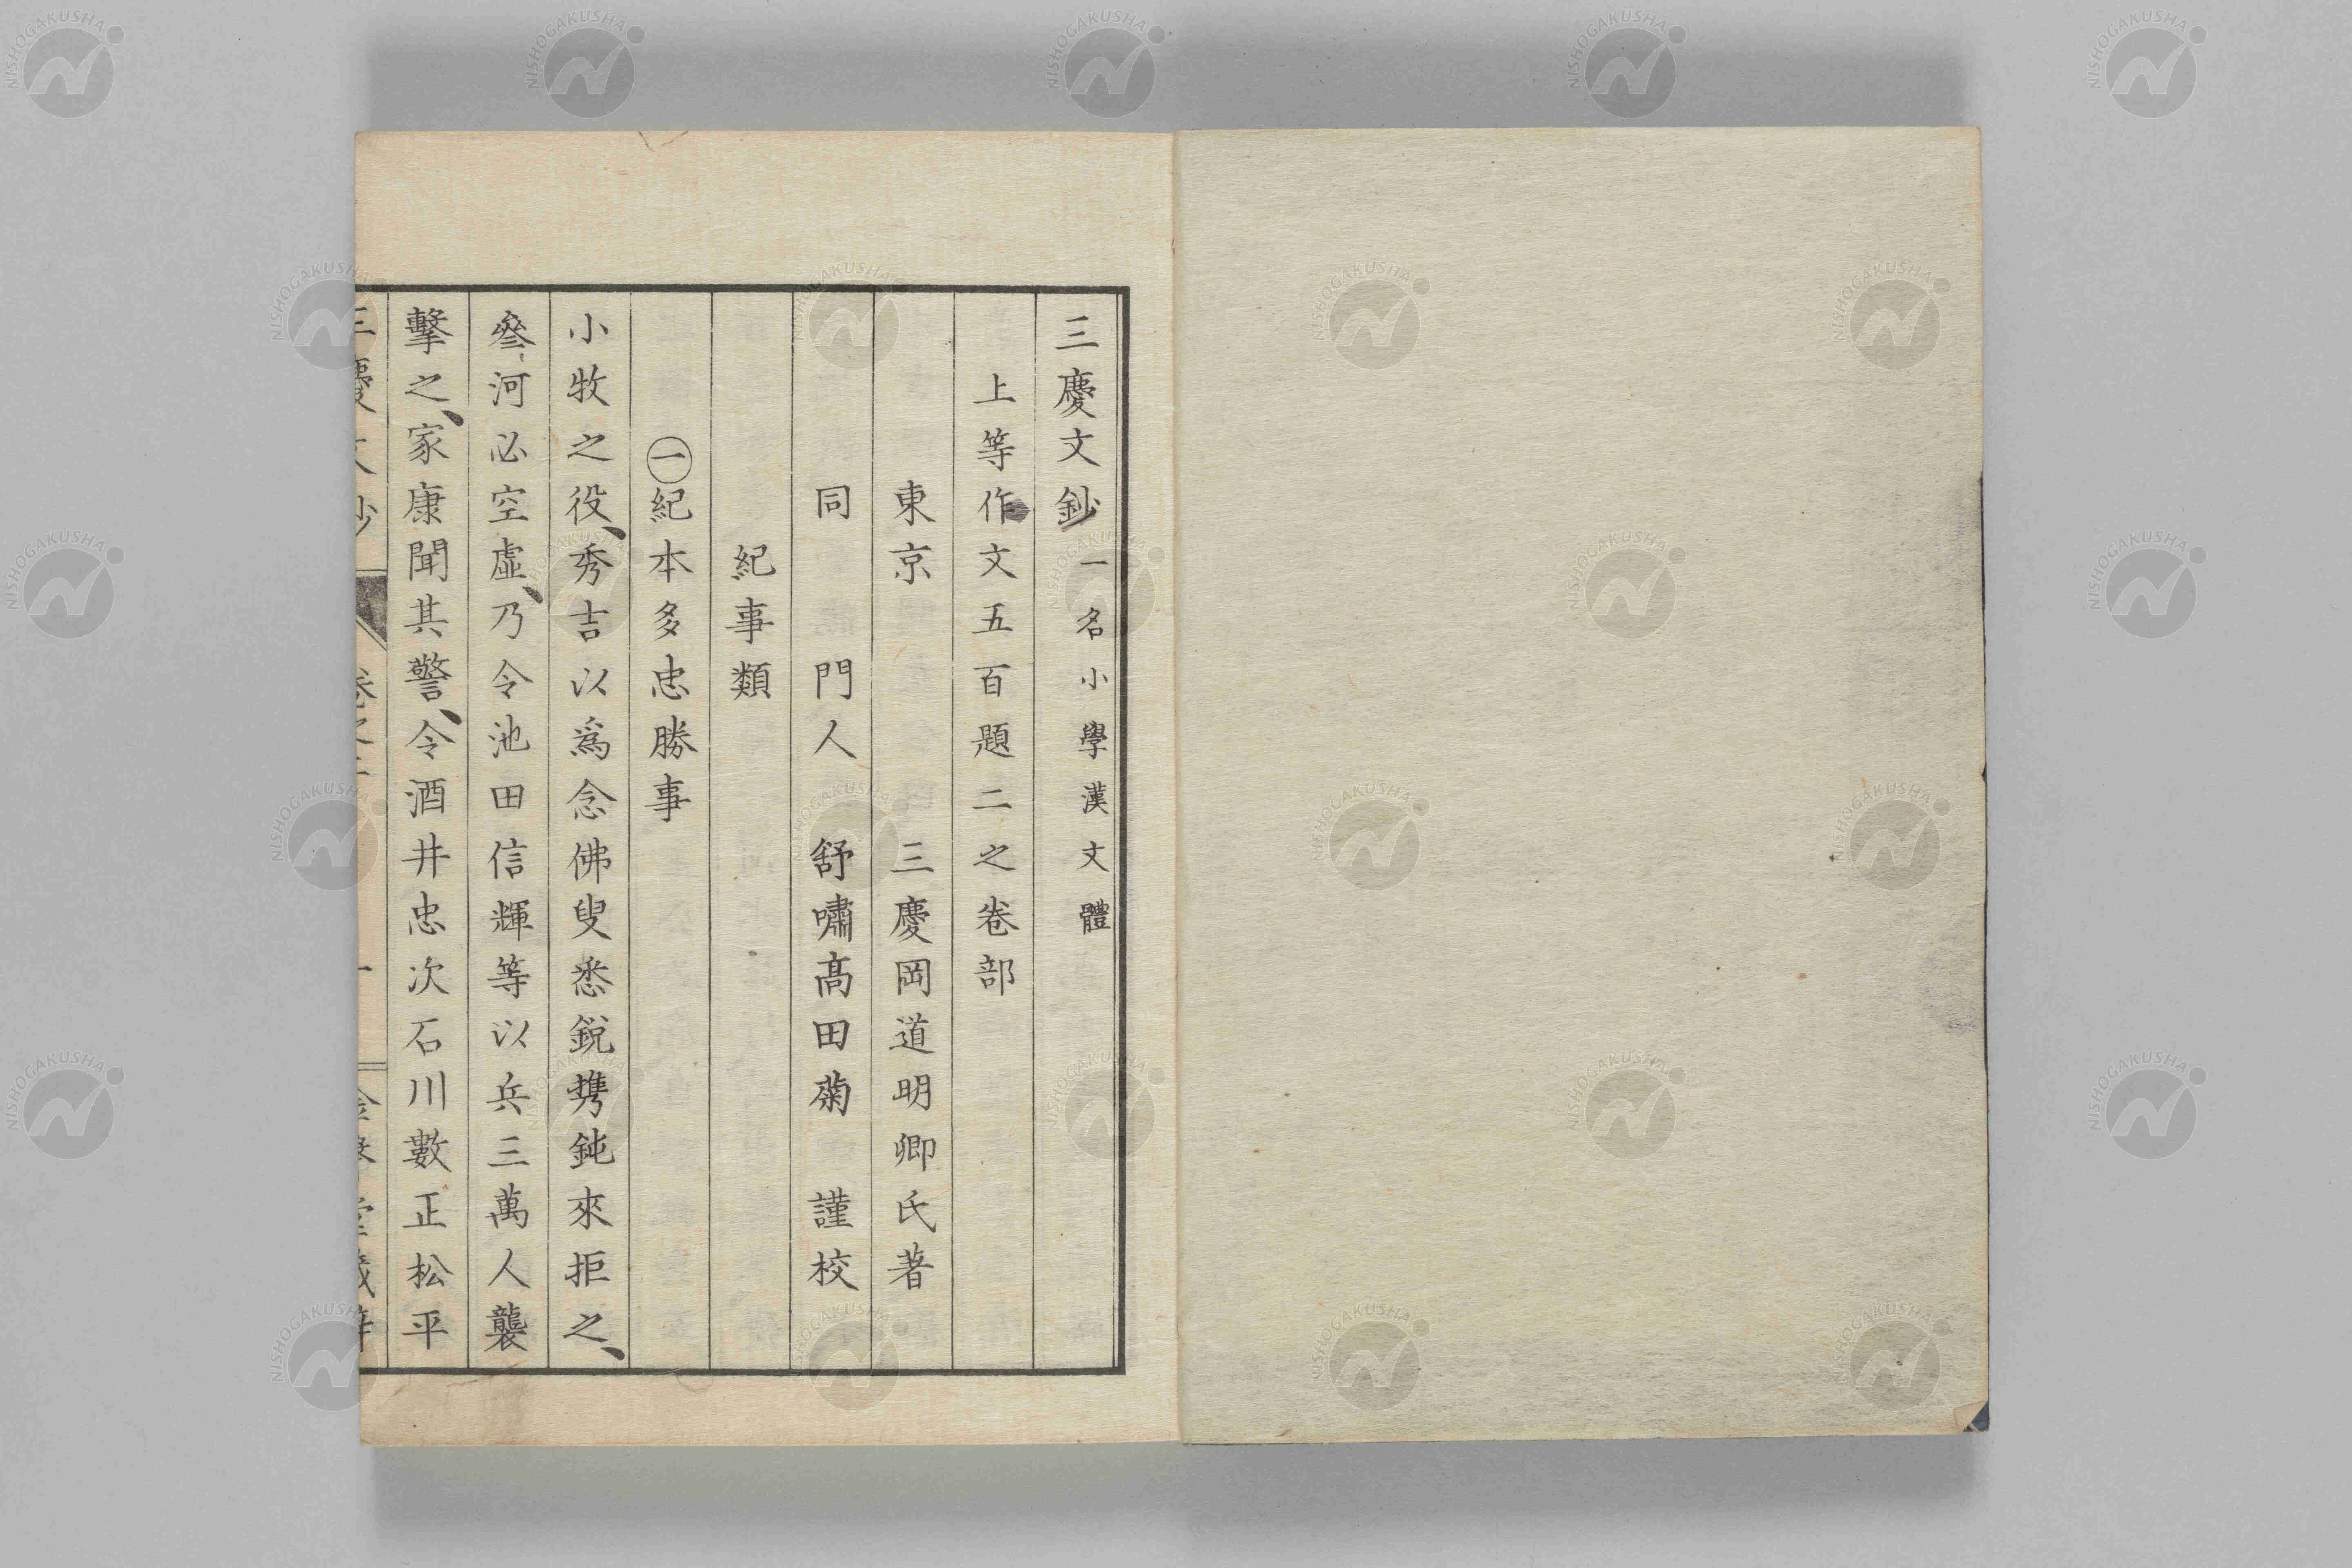 三慶文鈔 一名小學漢文體
上等作文五百題二之卷部
東京 三慶岡道明卿氏著
同 門人 舒嘯髙田菊 謹校
紀事類
㊀紀本多忠勝事
小牧之役、秀吉以爲念佛叟悉銳携鈍來拒之、
參河必空虛、乃令池田信輝等以兵三萬人襲
擊之、家康聞其警、令酒井忠次石川數正松平
三慶文鈔
NISHOGAKUSHA